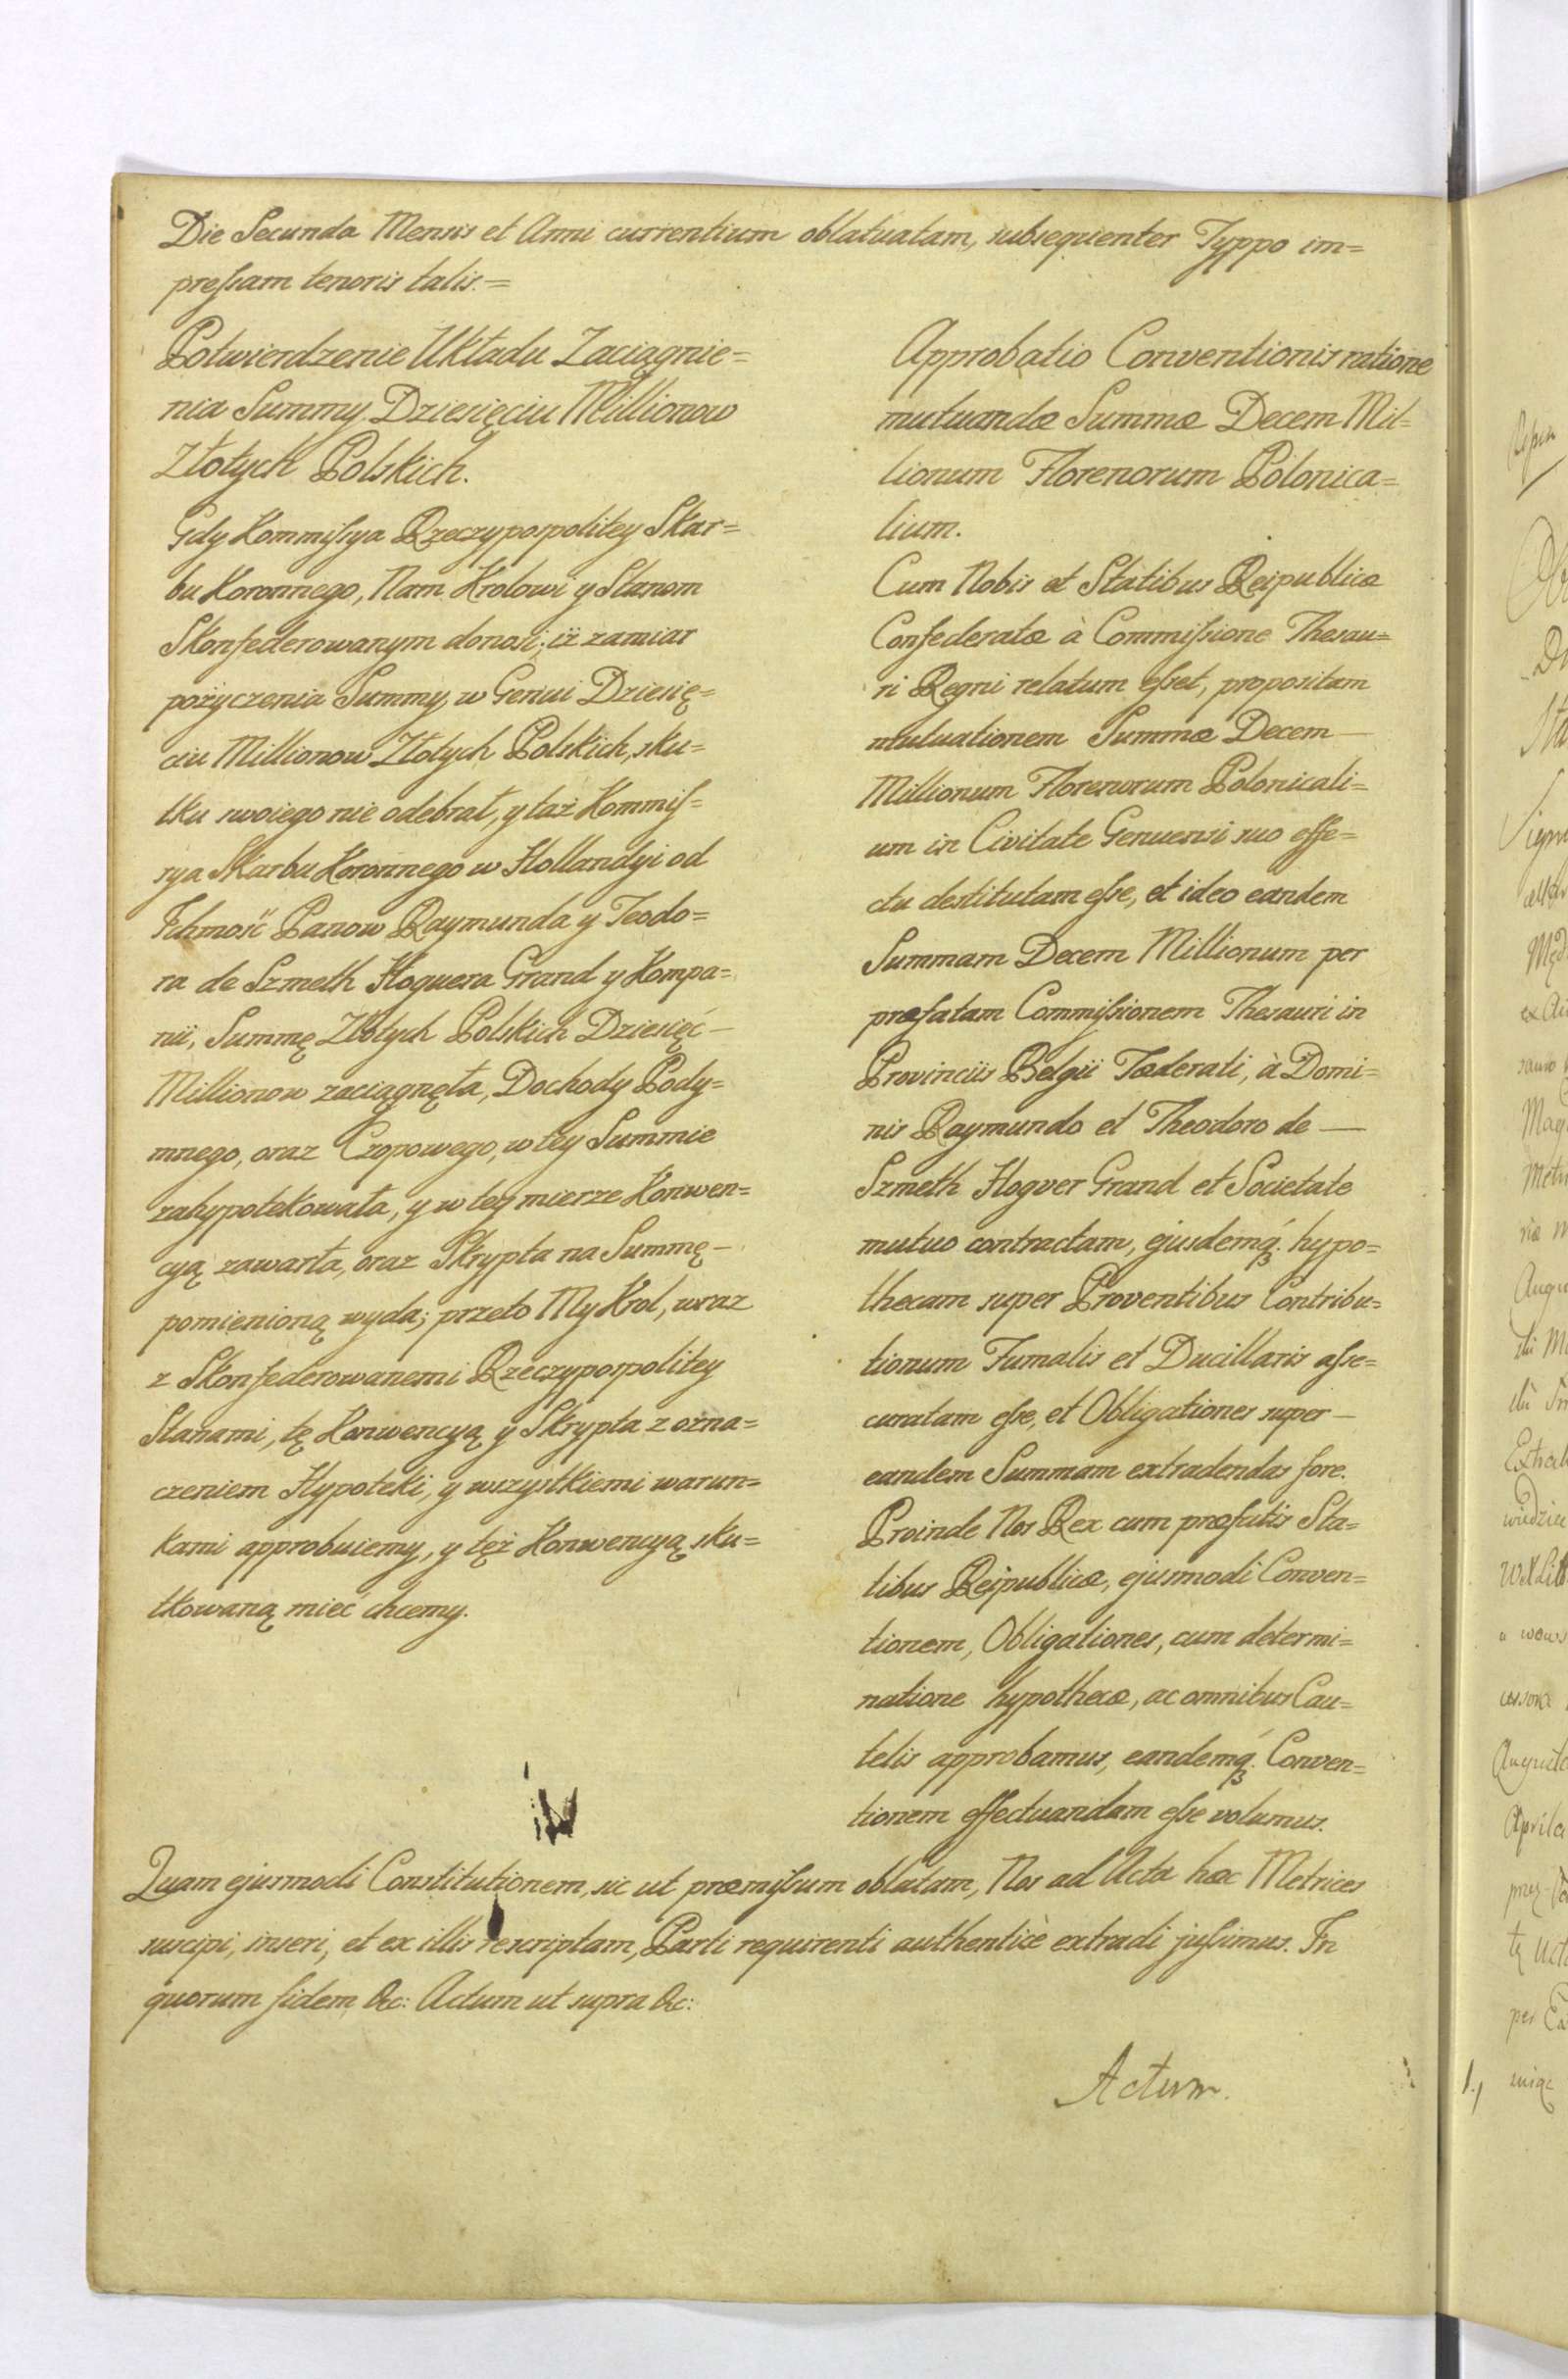 Die Secunda Mensis et Anni currentium oblatuatam, subsequenter Typpo im=
pressam tenoris talis.=
Potwierdzenie Układu Zaciągnie=
nia Summy Dziesięciu Millionow
Złotych Polskich.
Gdy Kommissya Rzeczypospolitey Skar=
bu Koronnego, Nam Krolowi y Stanom
Skonfederowanym donosi; iż zamiar
pożyczenia Summy w Genui Dziesię=
ciu Millionow Złotych Polskich, sku=
tku swoiego nie odebrał, y taż Kommis=
sya Skarbu Koronnego w Hollandyi od
Ichmość Panow Raymunda y Teodo=
ra de Szmeth Hoguera Grand y Kompa=
nii, Summę Złotych Polskich Dziesięć —
Millionow zaciągnęła, Dochody Pody=
mnego, oraz Czopowego, w tey Summie
zahypotekowała, y w tey mierze Konwen=
cyą zawarła, oraz Skrypta na Summę —
pomienioną wyda; przeto My Krol, wraz
z Skonfederowanemi Rzeczypospolitey
Stanami, tę Konwencyą y Skrypta z ozna=
czeniem Hypoteki, y wszystkiemi warun=
kami approbuiemy, y też Konwencyą sku=
tkowaną mieć chcemy.
Approbatio Conventionis ratione
mutuandæ Summæ Decem Mil=
lionum Florenorum Polonica=
lium.
Cum Nobis et Statibus Reipublicæ
Confederatæ à Commissione Thesau=
ri Regni relatum esset, propositam
mutuationem Summæ Decem —
Millionum Florenorum Polonicali=
um in Civitate Genuensi suo effe=
ctu destitutam esse, et ideo eandem
Summam Decem Millionum per
præfatam Commissionem Thesauri in
Provinciis Belgii Fæderati, à Domi=
nis Raymundo et Theodoro de —
Szmeth Hogver Grand et Societate
mutuo contractam, ejusdemq́ꝫ. hypo=
thecam super Proventibus Contribu=
tionum Fumalis et Ducillaris asse=
curatam esse, et Obligationes super —
eandem Summam extradendas fore.
Proinde Nos Rex cum præfatis Sta=
tibus Reipublicæ, ejusmodi Conven=
tionem, Obligationes, cum determi=
natione hypothecæ, ac omnibus Cau=
telis approbamus, eandemq́ꝫ. Conven=
tionem effectuandam esse volumus.
Quam ejusmodi Constitutionem, sic ut præmissum oblatam, Nos ad Acta hæc Metrices
suscipi, inseri, et ex illis rescriptam, Parti requirenti authenticè extradi jussimus. In
quorum fidem &c: Actum ut supra &c:
Actum.